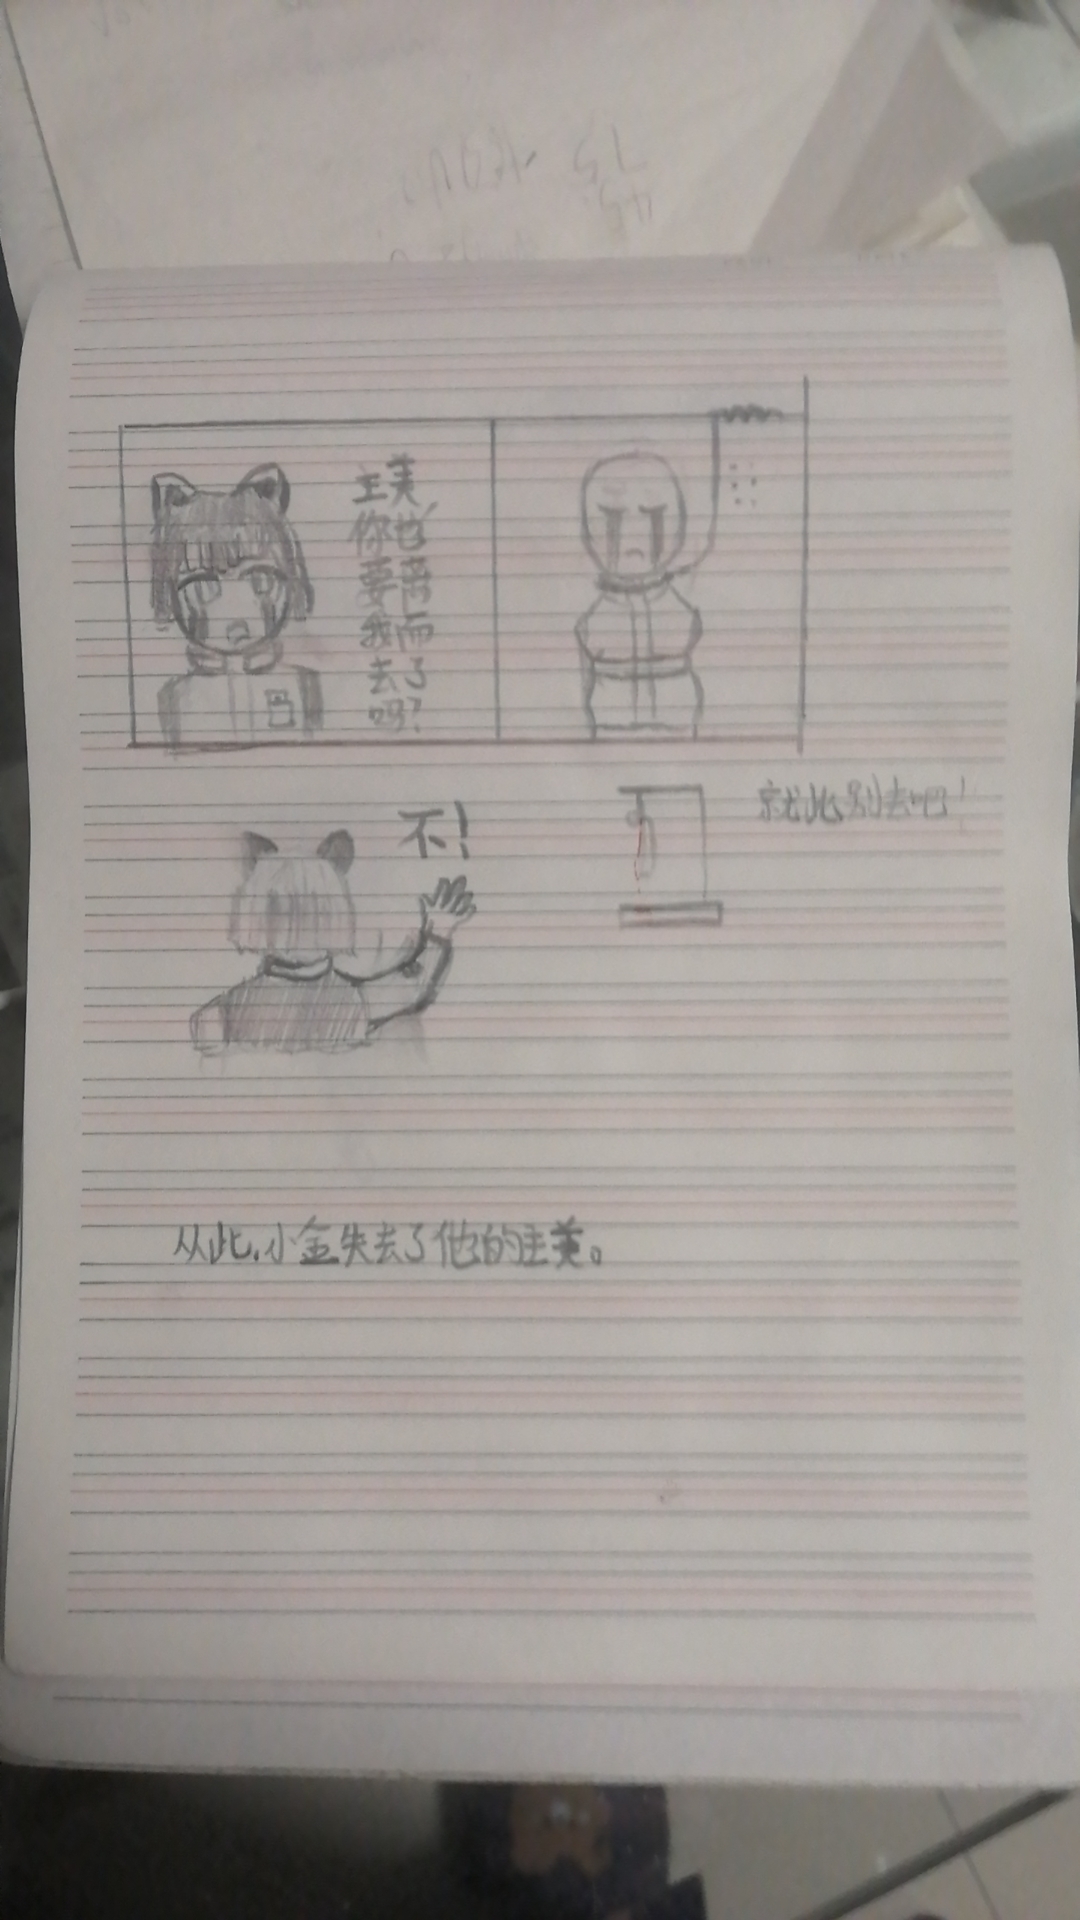 主美，
你也
要离
我而
去了
吗？
不！
就此别去吧！
从此,小金失去了他的主美。